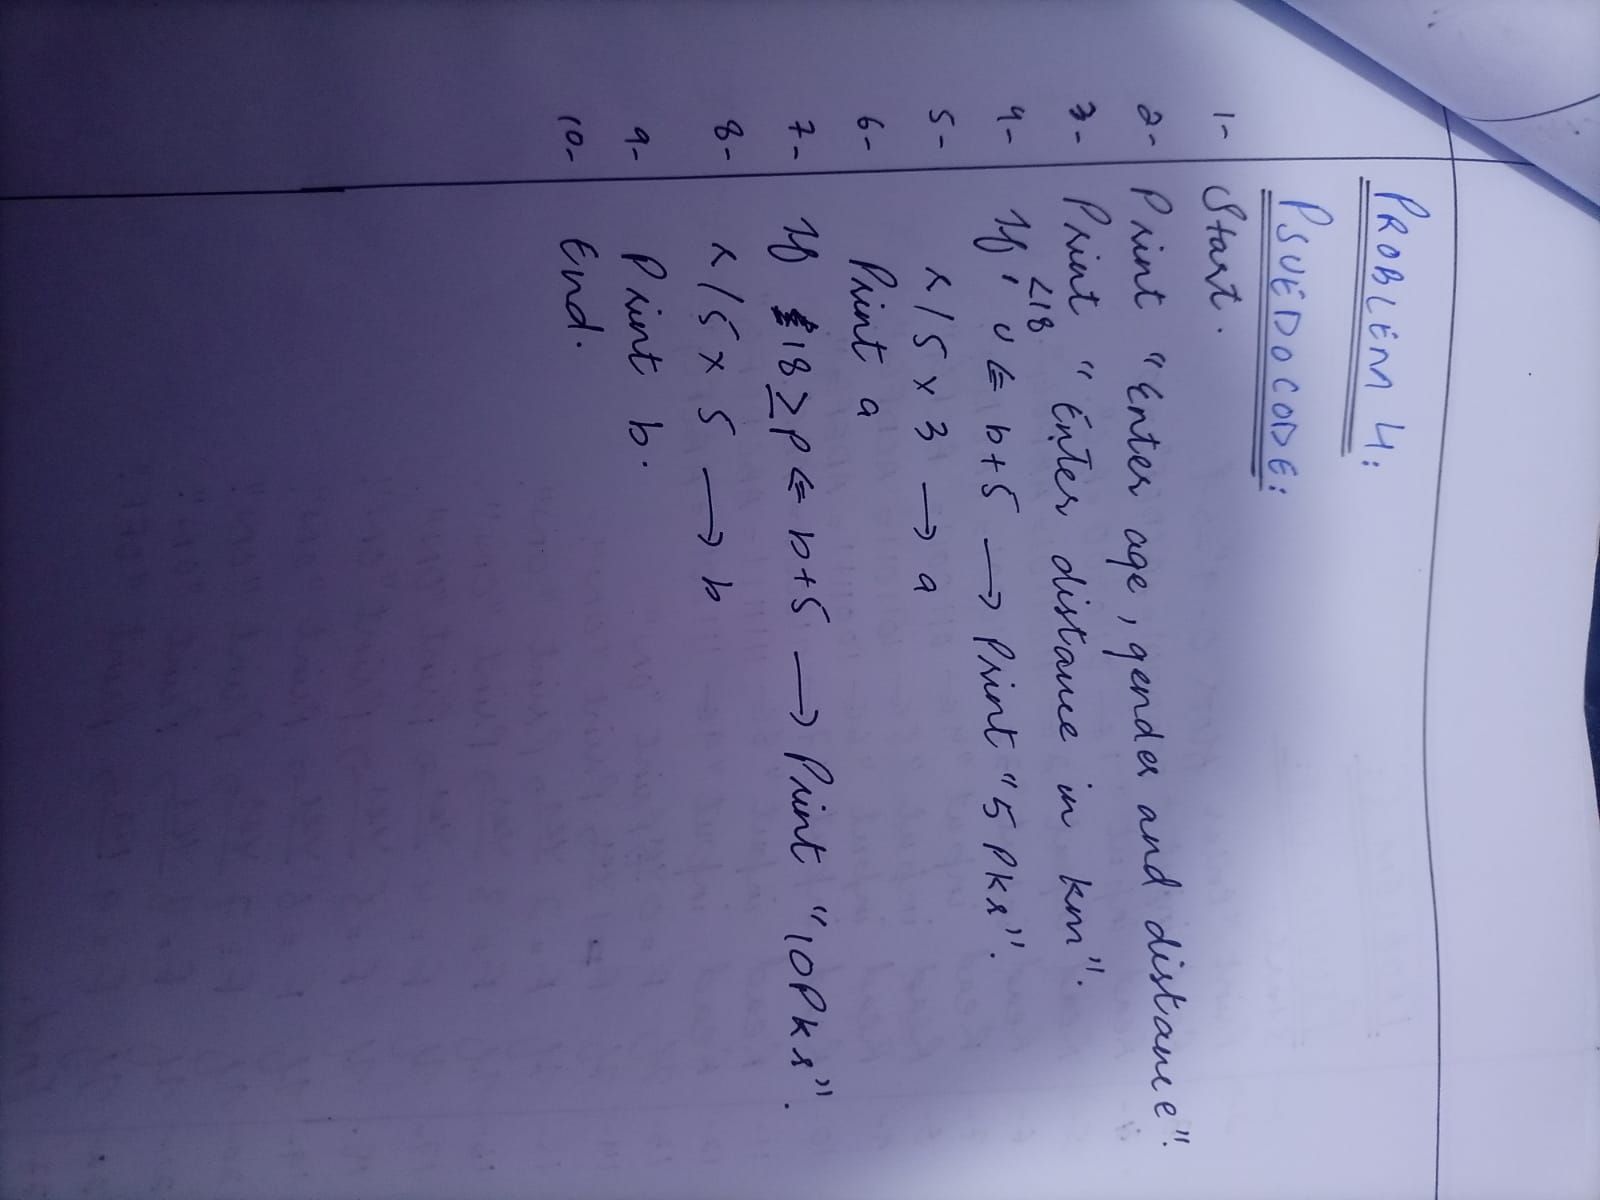 PROBLEM 4:
PSUEDOCODE:
1- Start.
2- Print "Enter age, gender and distance".
3- Print "Enter distance in km".
<18
4- If, ⇐ b+5 → Print "5 Pkr".
5- x/5 x 3 → a
6- Print a
7- If 18 ≥ p ⇐ b+5 → Print "10Pkr".
8- x/5 x 5 → b
9- Print b.
10- End.